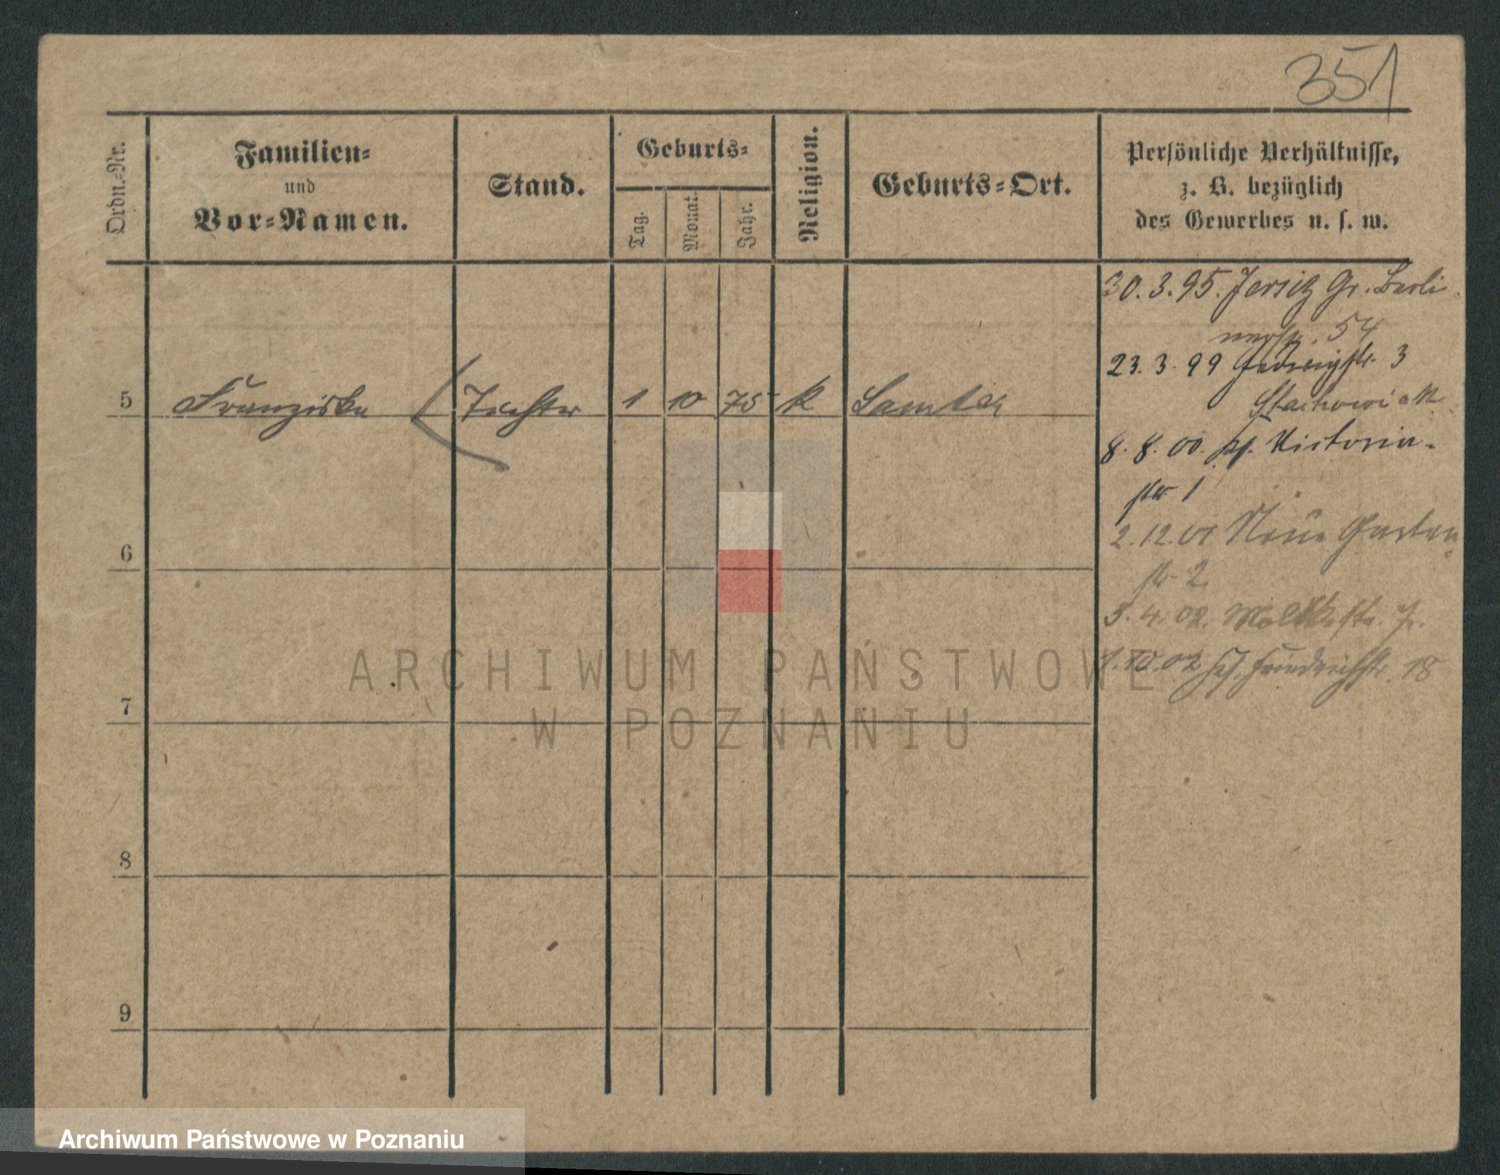 351
Ordn.-Nr.
Familien-
und
Vor-Namen.
Stand.
Geburts-
Tag.
Monat.
Jahr.
Religion.
Geburts-Ort.
Persönliche Verhältnisse,
z. B. bezüglich
des Gewerbes u. s. w.
30.3.95. Jersitz Gr. Berli
nerstr. 54
23.3.99 Hedwigstr. 3
Stachowiak
5 Franziska Tochter 1 10 75 k Samter
8.8.00. Victoria-
str 1
2.12.01 Neue Garten
str 2
3.4.02. Moltkestr.
6
.10.02 Friedrichstr. 18
7
8
9
ARCHIWUM PAŃSTWOWE
W POZNANIU
Archiwum Państwowe w Poznaniu